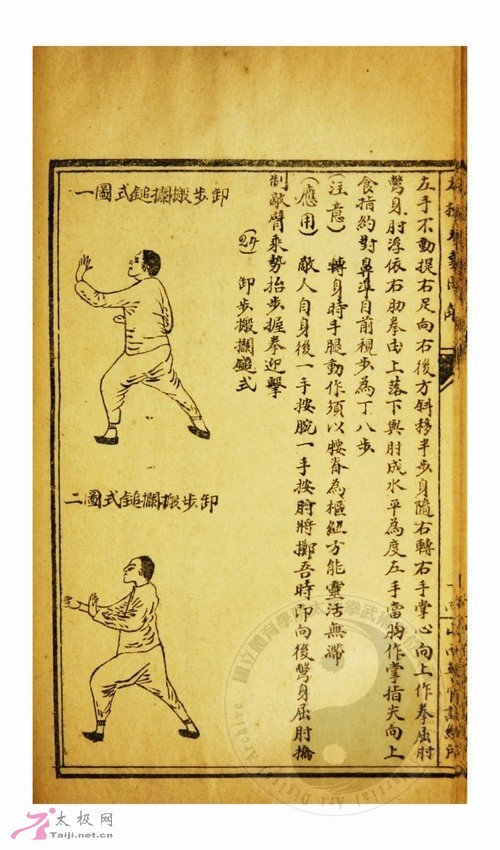 左手不動提右足向右後方斜移半步身隨右轉右手掌心向上作拳屈肘
彎身肘浮依右肋拳由上落下與肘成水平為度左手當胸作掌指尖向上
食指約對鼻準目前視步為丁八步
(注意) 轉身時手腿動作須以腰脊為樞紐方能靈活無滯
(應用) 敵人自身後一手按腕一手按肘將擲吾時即向後彎身屈肘擒
制敵臂乘勢抬步握拳迎擊
卸步搬攔鎚式
卸步搬攔鎚式圖一
卸步搬攔鎚式圖二
太极网
Taiji.net.cn